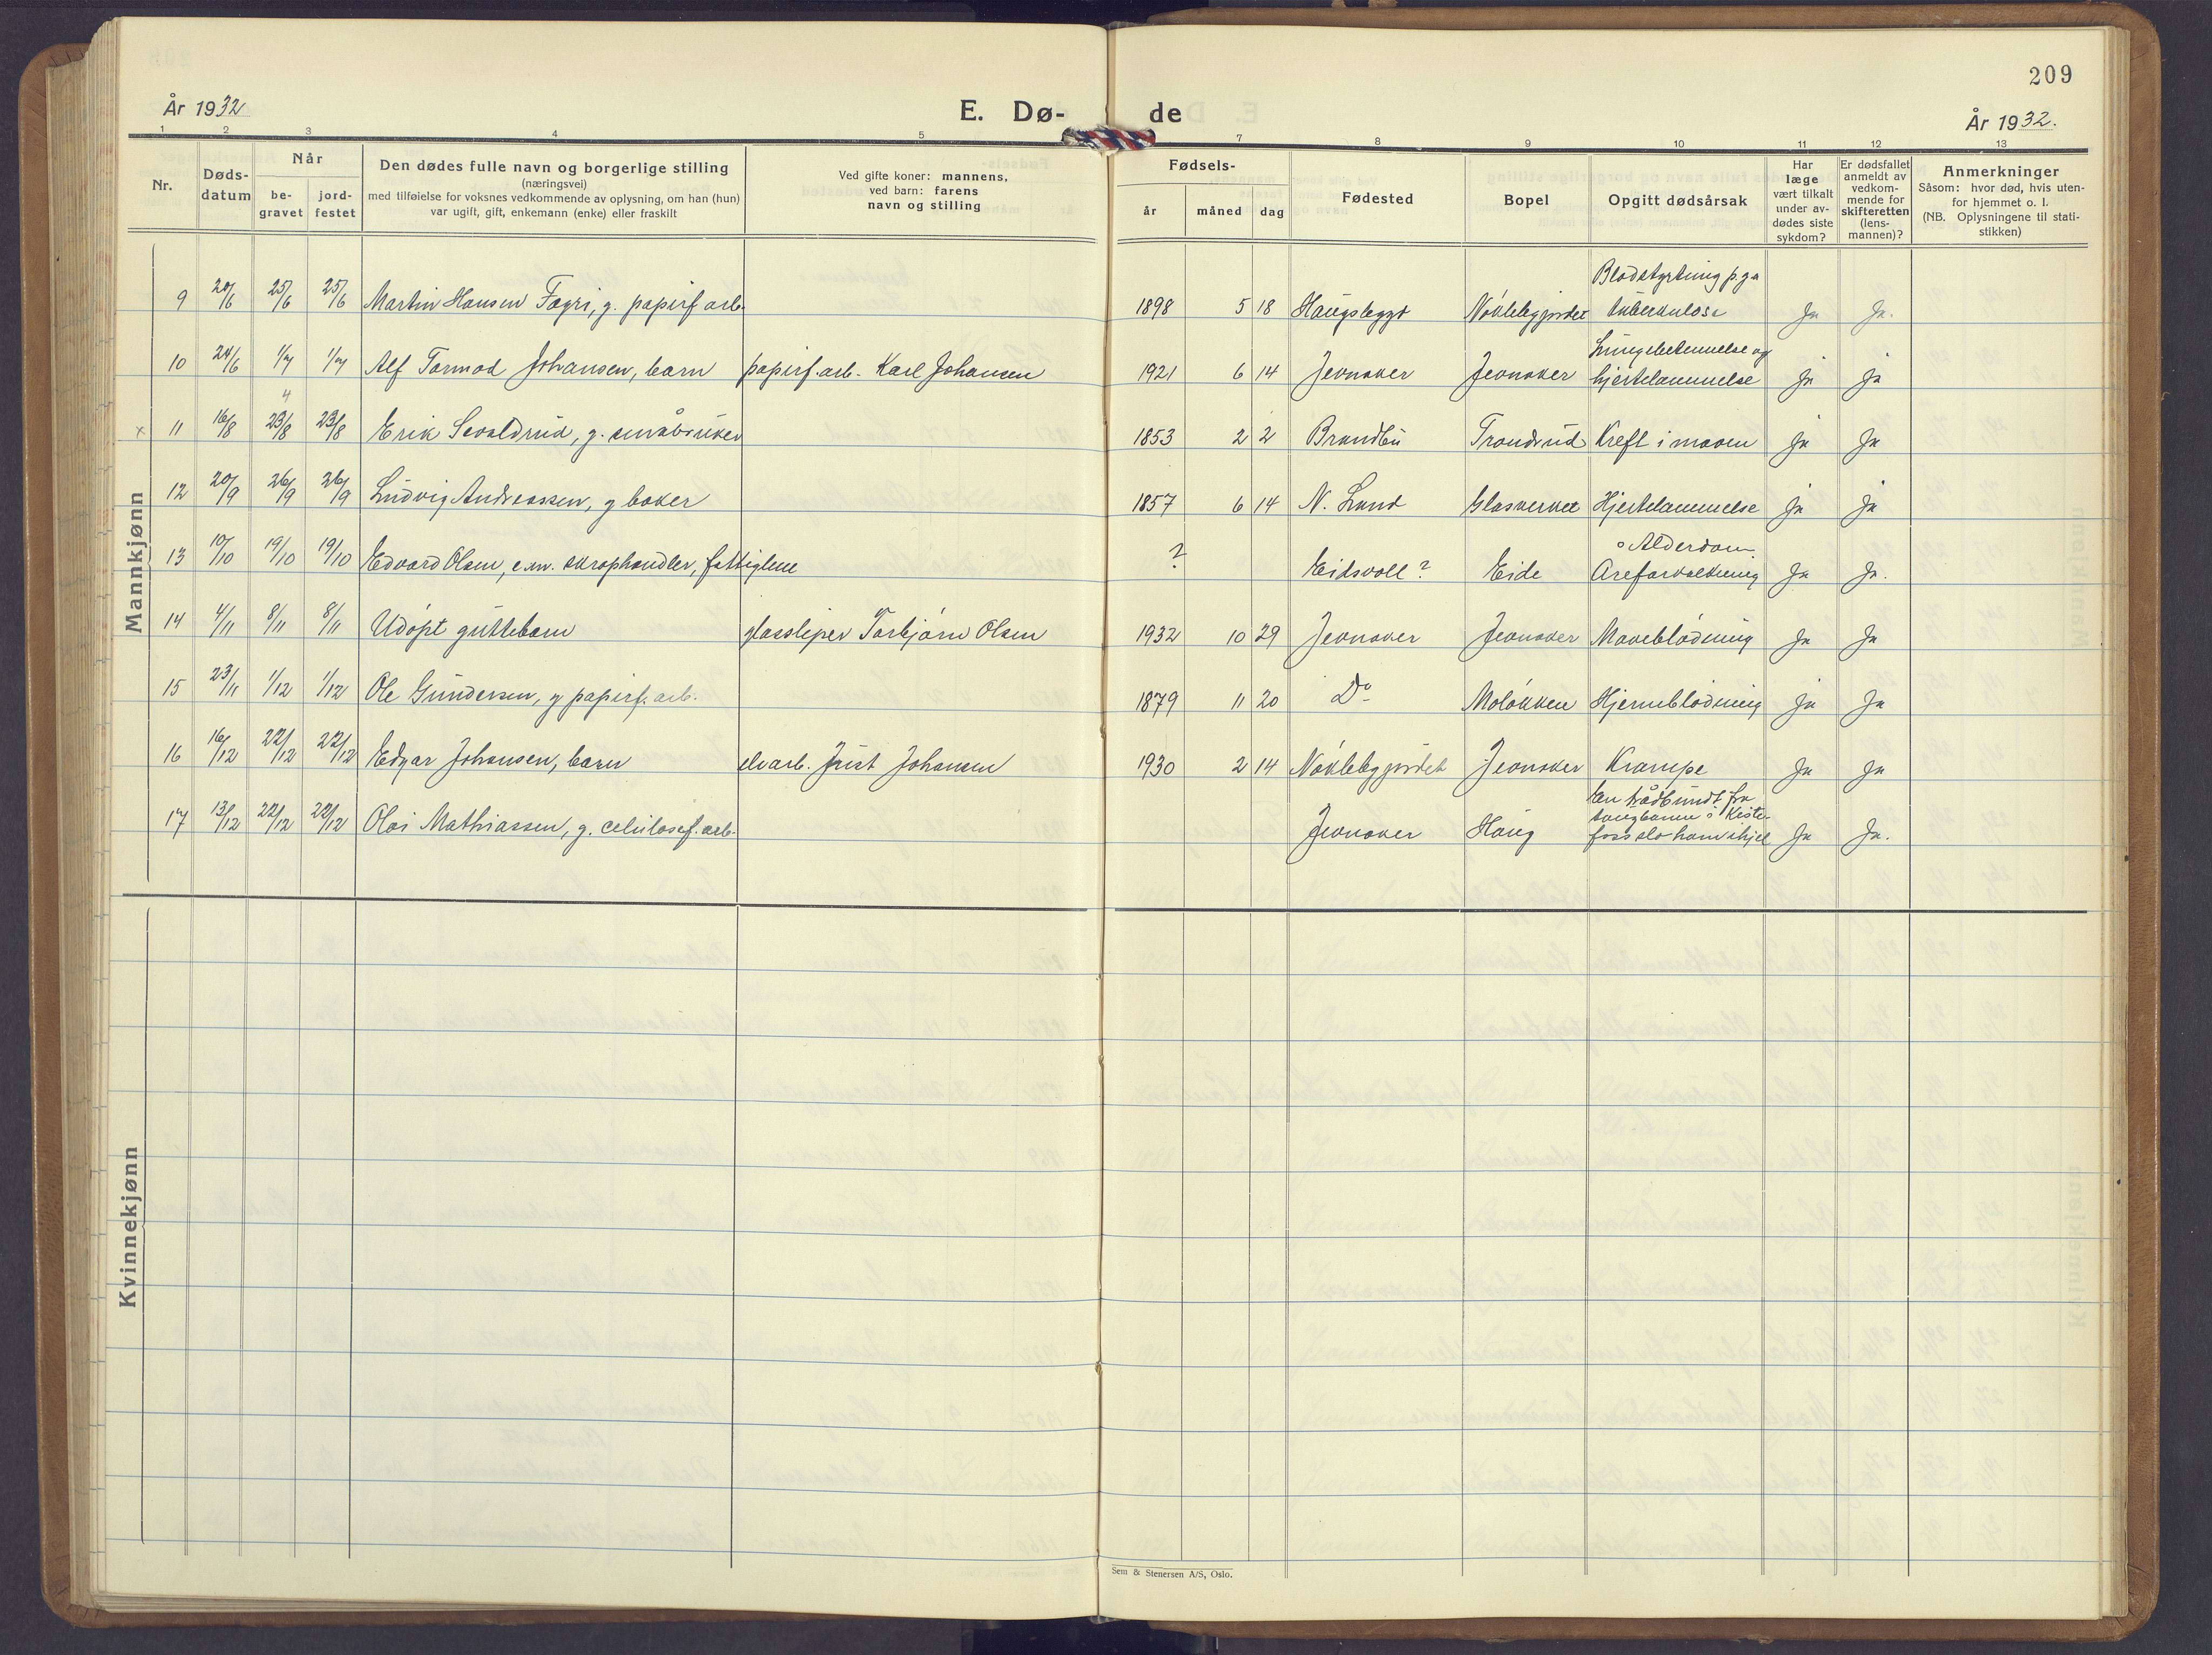 209
År 1932
E. Dø-
de
År 1932.
1 2 3 4 5 7 8 9 10 11 12 13
Nr.
Døds-
datum
Når
be-
gravet
jord-
festet
Den dødes fulle navn og borgerlige stilling
(næringsvei)
med tilføielse for voksnes vedkommende av oplysning, om han (hun)
var ugift, gift, enkemann (enke) eller fraskilt
Ved gifte koner: mannens,
ved barn: farens
navn og stilling
Fødsels-
år måned dag
Fødested
Bopel
Opgitt dødsårsak
Har
læge
vært tilkalt
under av-
dødes siste
sykdom?
Er dødsfallet
anmeldt av
vedkom-
mende for
skifteretten
(lens-
mannen)?
Anmerkninger
Såsom: hvor død, hvis uten-
for hjemmet o. l.
(NB. Oplysningene til stati-
stikken)
Mannkjønn
Blodstyrtning p.ga
9 20/6 25/6 25/6 Martin Hansen Fagri, g. papirf arb. 1898 5 18 Haugsbygd Nøklebygjordet tuberkulose Ja Ja.
Lungebetennelse og
10 24/6 1/7 1/7 Alf Tormod Johansen, barn papirf. arb. Karl Johansen 1921 6 14 Jevnaker Jevnaker hjertelammelse Ja Ja
4
x 11 16/8 23/8 23/8 Erik Sevaldrud, g. småbruker 1853 2 2 Brandbu Trondrud Kreft i maven Ja Ja
12 20/9 26/9 26/9 Ludvig Andreassen, g baker 1857 6 14 N. Land Glasverket Hjertelammelse Ja Ja
o Alderdom.
13 10/10 19/10 19/10 Edvard Olsen, e.m. skraphandler, fattiglem ? Eidsvoll? Eide Åreforkalkning Ja Ja.
14 4/11 8/11 8/11 Udøpt guttebarn glassliper Torbjørn Olsen 1932 10 29 Jevnaker Jevnaker Maveblødning Ja Ja
15 23/11 1/12 1/12 Ole Gundersen, g papirf. arb. 1879 11 20 Do Moløkken Hjerneblødning Ja Ja
16 16/12 22/12 22/12 Edgar Johansen, barn elvarb. Just Johansen 1930 2 14 Nøklebygjordet Jevnaker Krampe Ja Ja
En trådbundt fra
taugbanen i Kiste-
17 13/12 22/12 22/12 Olai Mathiassen, g. celulosef. arb. Jevnaker Haug foss slo ham ihjel Ja Ja.
Kvinnekjønn
Sem & Stenersen A/S, Oslo.